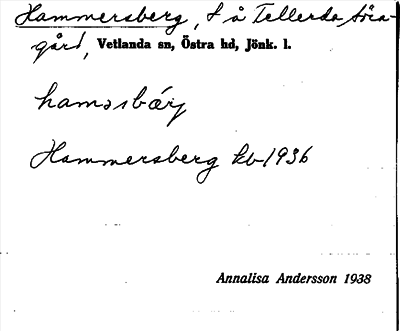 Hammersberg, t å Tellerda Söra-
gård, Vetlanda sn, Östra hd, Jönk. l.
hamərbärj
Hammersberg kb 1936
Annalisa Andersson 1938